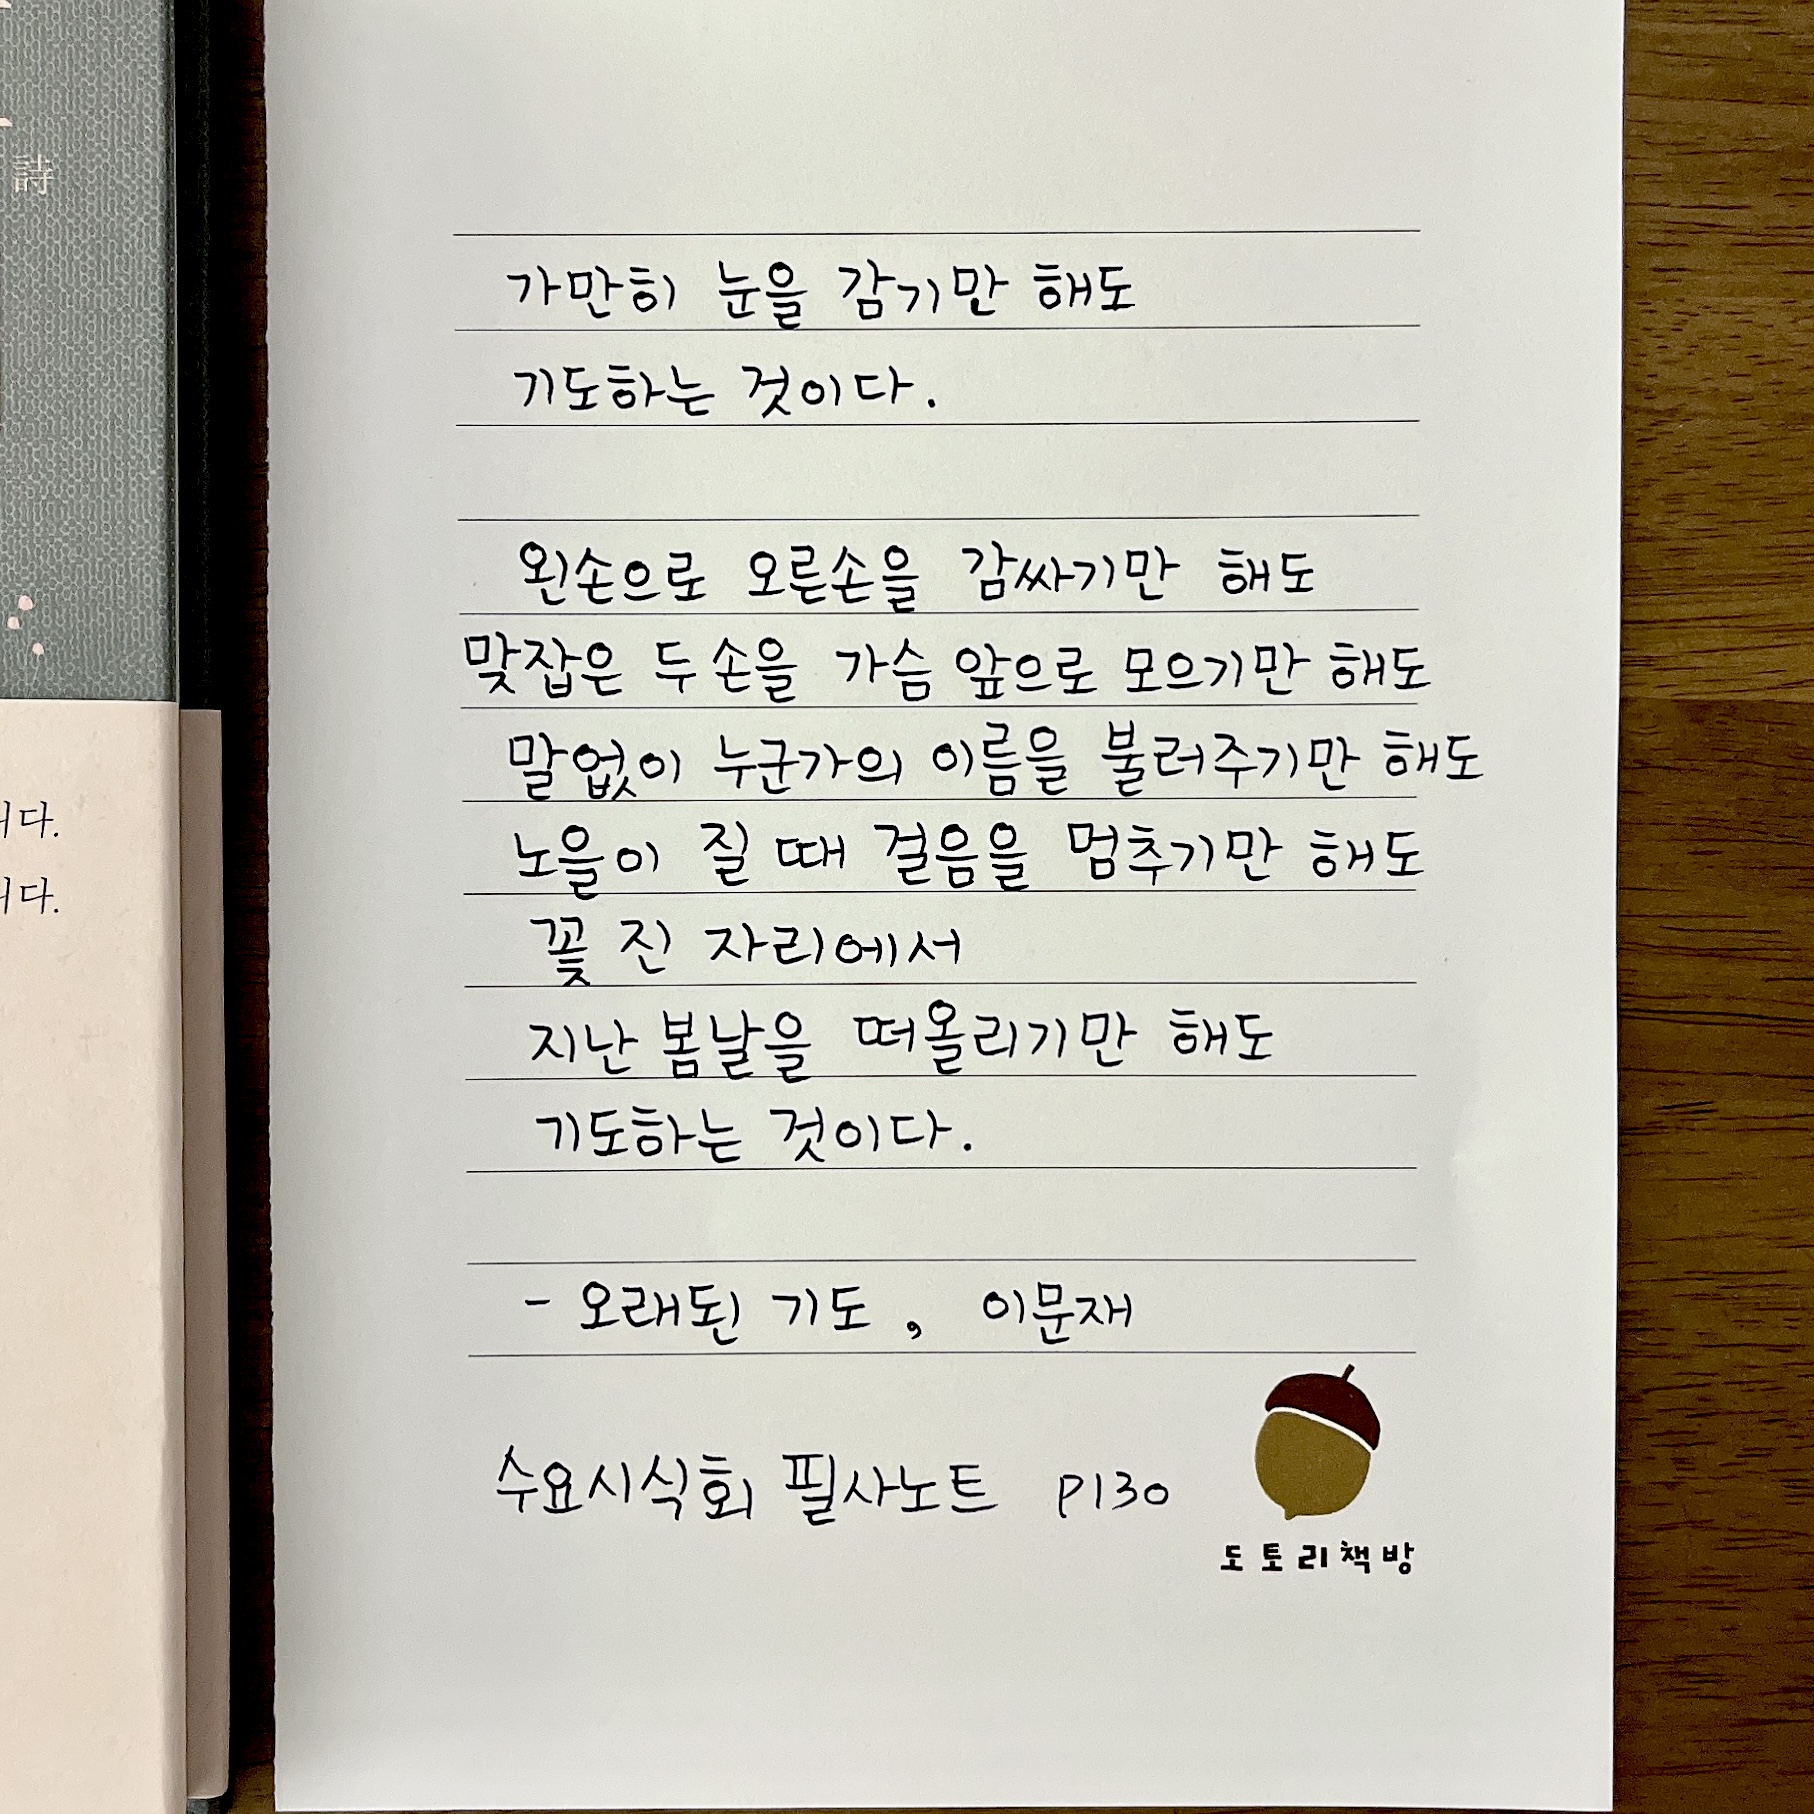 詩
니다.
니다.
가만히 눈을 감기만 해도
기도하는 것이다.
왼손으로 오른손을 감싸기만 해도
맞잡은 두 손을 가슴 앞으로 모으기만 해도
말없이 누군가의 이름을 불러주기만 해도
노을이 질 때 걸음을 멈추기만 해도
꽃 진 자리에서
지난 봄날을 떠올리기만 해도
기도하는 것이다.
- 오래된 기도, 이문재
수요시식회 필사노트 P130
도토리책방